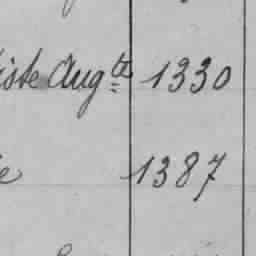 iste Aug^te 1330
e 1387